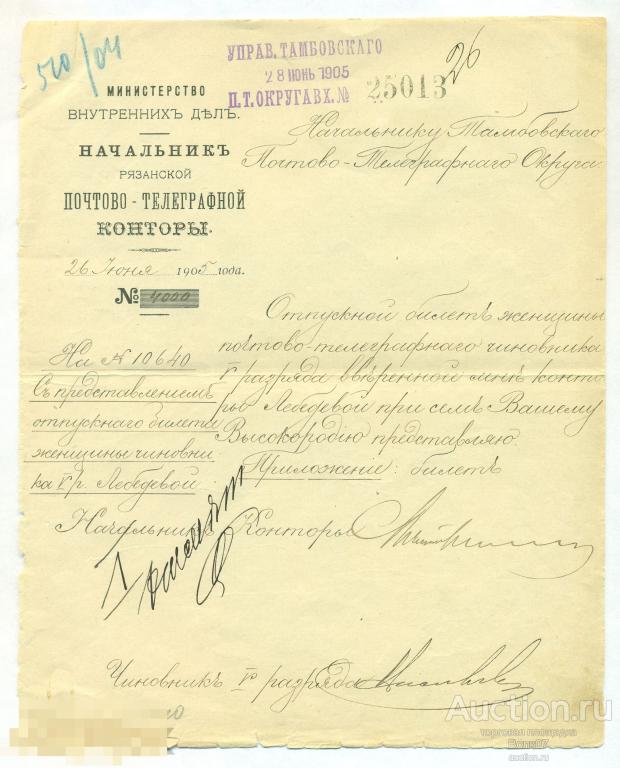 510/04
УПРАВ. ТАМБОВСКАГО
28 ІЮНЬ 1905
П.Т. ОКРУГА ВХ. №
25013
26
МИНИСТЕРСТВО
ВНУТРЕННИХЪ ДѢЛЪ.
НАЧАЛЬНИКЪ
РЯЗАНСКОЙ
ПОЧТОВО-ТЕЛЕГРАФНОЙ
КОНТОРЫ.
26 Іюня 1905 года.
№ 4000
На № 10640
Съ представленіемъ
отпускнаго билета
женщины чиновни
ка V р. Лебедевой
Начальнику Тамбовскаго
Почтово-Телеграфнаго Округа
Отпускной билетъ женщины
почтово-телеграфнаго чиновника
V разряда ввѣренной мнѣ конто
ры Лебедевой при семъ Вашему
Высокородію представляю.
Приложеніе: билетъ
Начальникъ Конторы
Чиновникъ разряда
Auction.ru
торговая площадка
auction.ru